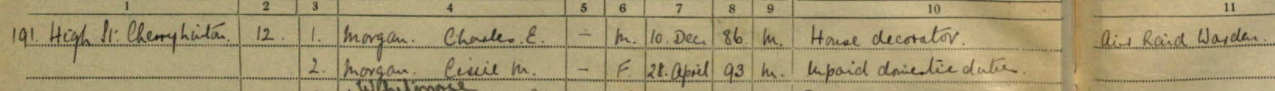 1 2 3 4 5 6 7 8 9 10 11
191. High St. Cherryhinton. 12. 1. Morgan. Charles. E. – M. 10. Dec. 86. M. House decorator. Air Raid Warden.
2. Morgan. Cissie M. – F. 28. April 93 M. Unpaid domestic duties.